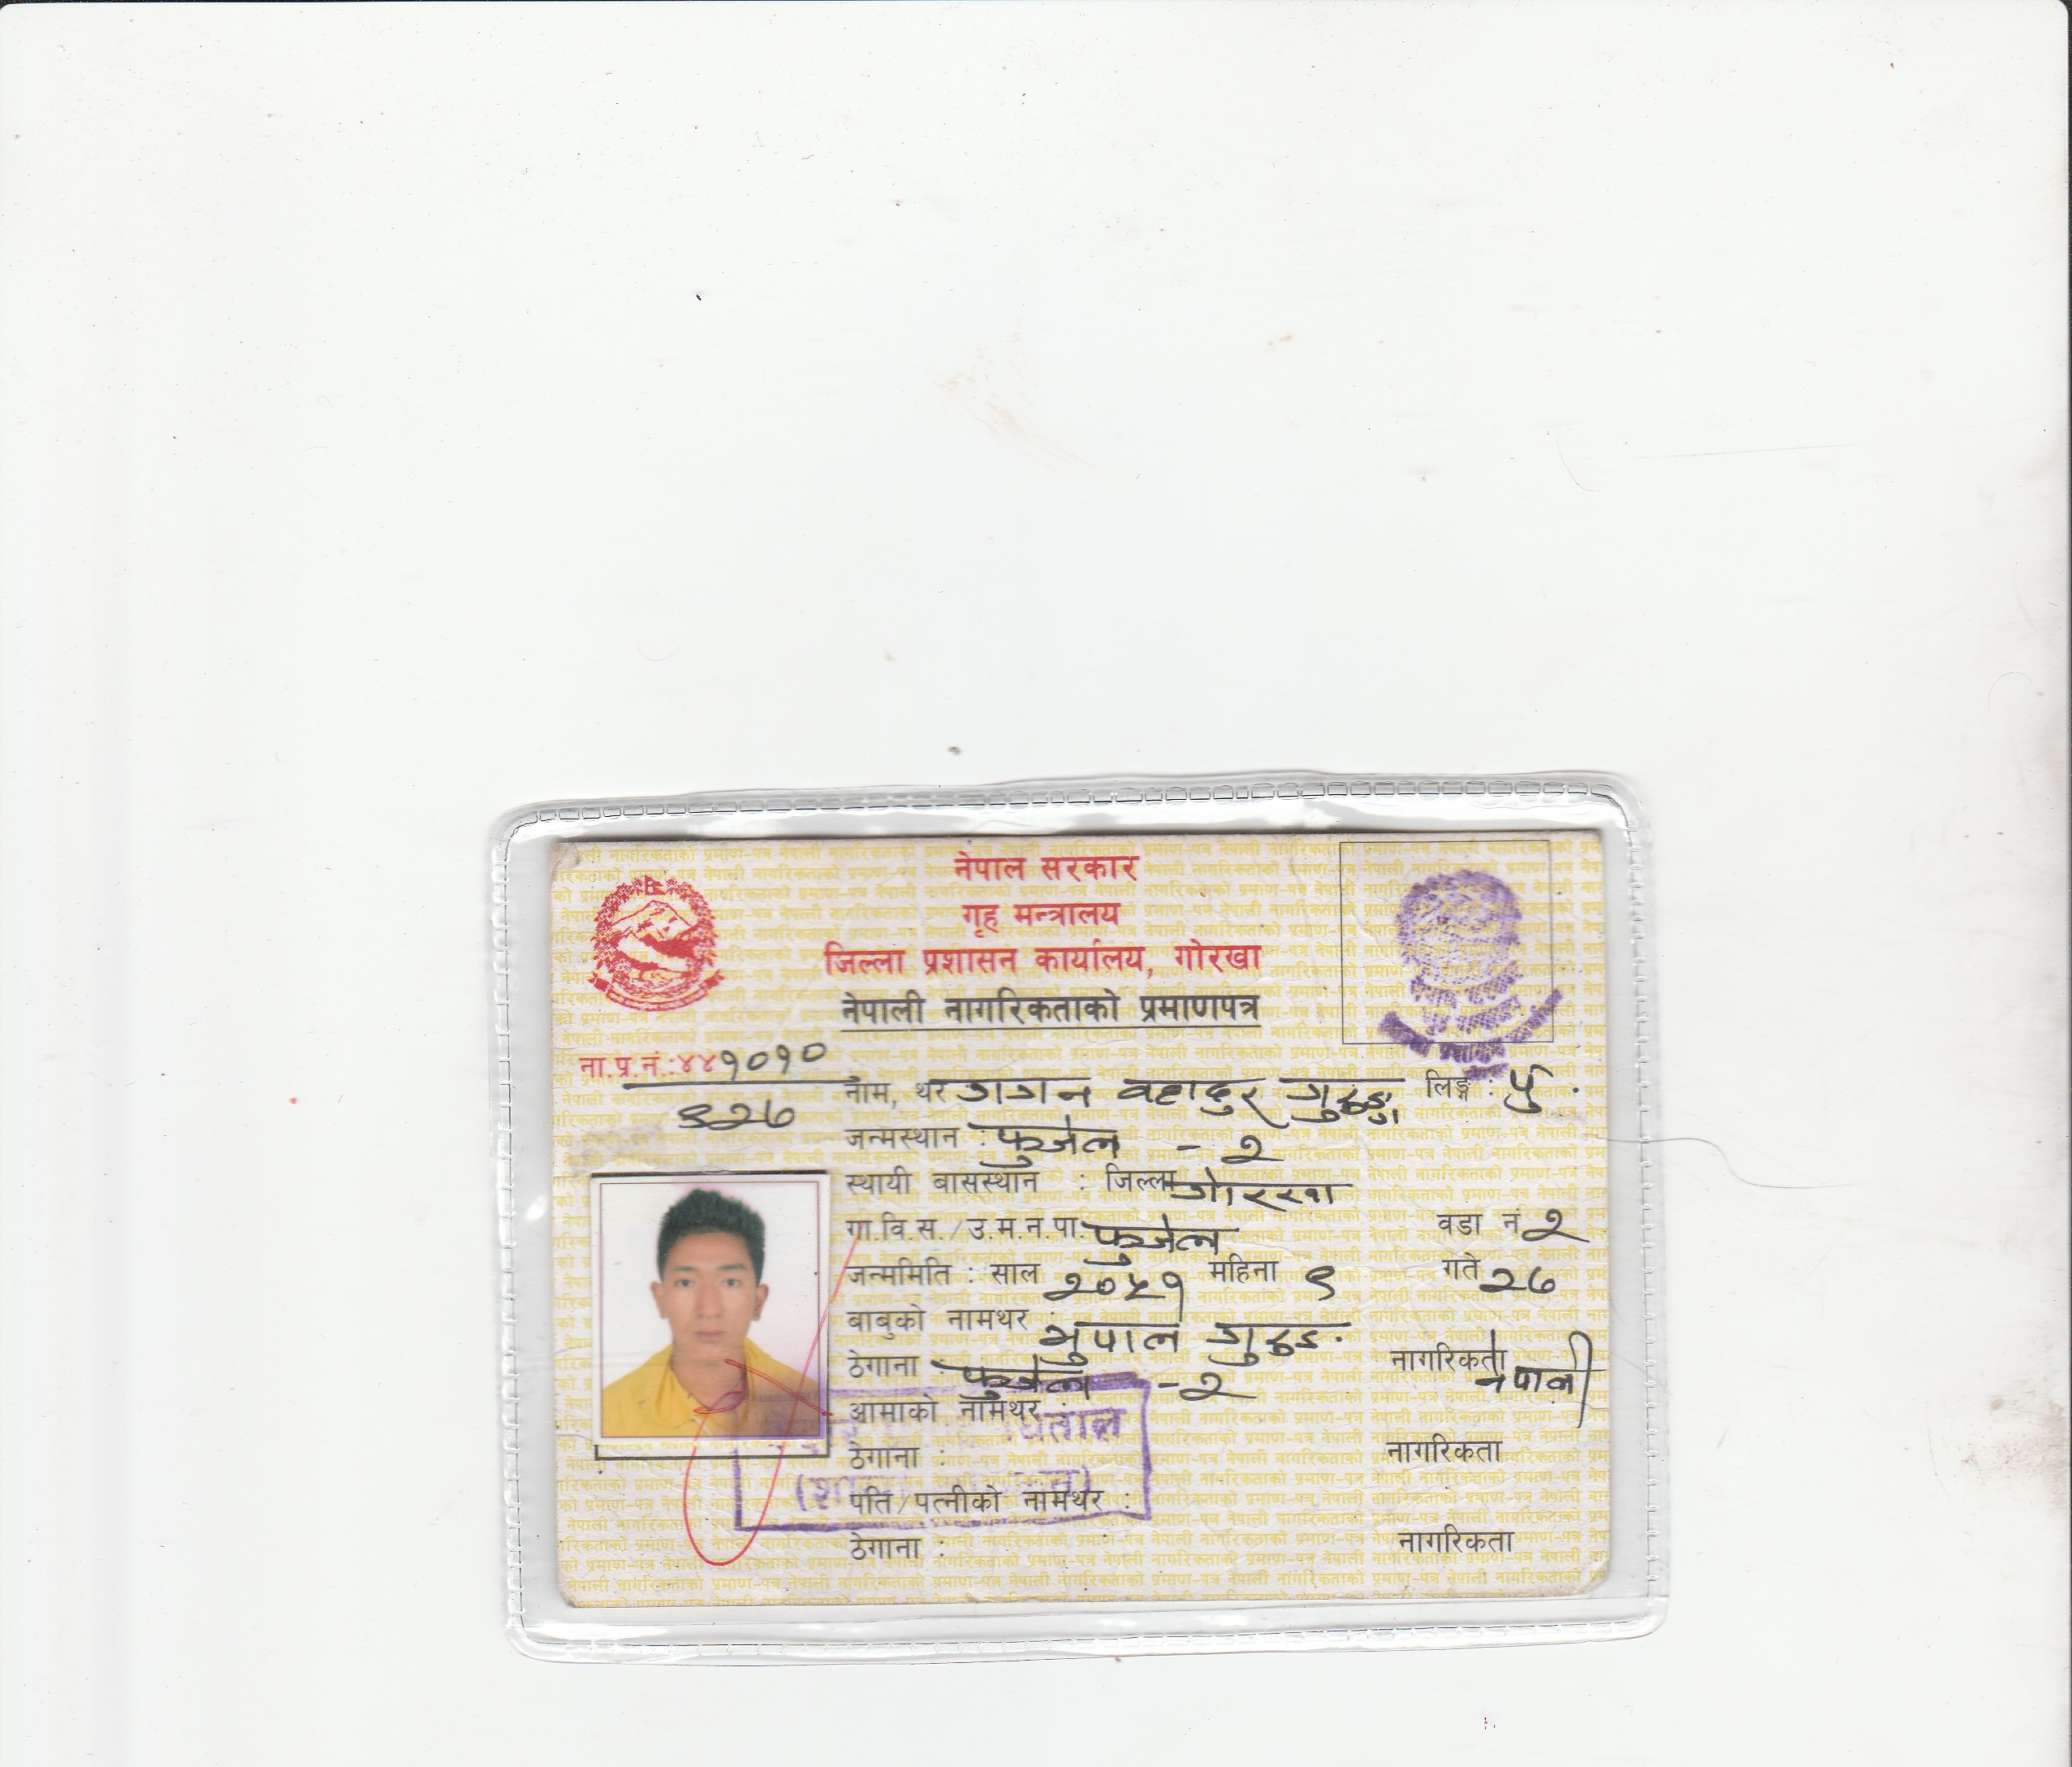 नेपाल सरकार
गृह मन्त्रालय
जिल्ला प्रशासन कार्यालय, गोरखा
नेपाली नागरिकताको प्रमाणपत्र
ना.प्र.नं.:४४१०१०
३२७
नाम, थर गगन वहादुर गुरुङ्ग लिङ्ग : पु.
जन्मस्थान : फुजेल - २
स्थायी बासस्थान : जिल्ला गोरखा
गा.वि.स./उ.म.न.पा. फुजेल वडा नं २
जन्ममिति : साल २०५१ महिना ९ गते २७
बाबुको नामथर : भुपाल गुरुङ
ठेगाना : फुजेल - २ नागरिकता नेपाली
आमाको नामथर :
ठेगाना नागरिकता
पति/पत्नीको नामथर :
ठेगाना : नागरिकता